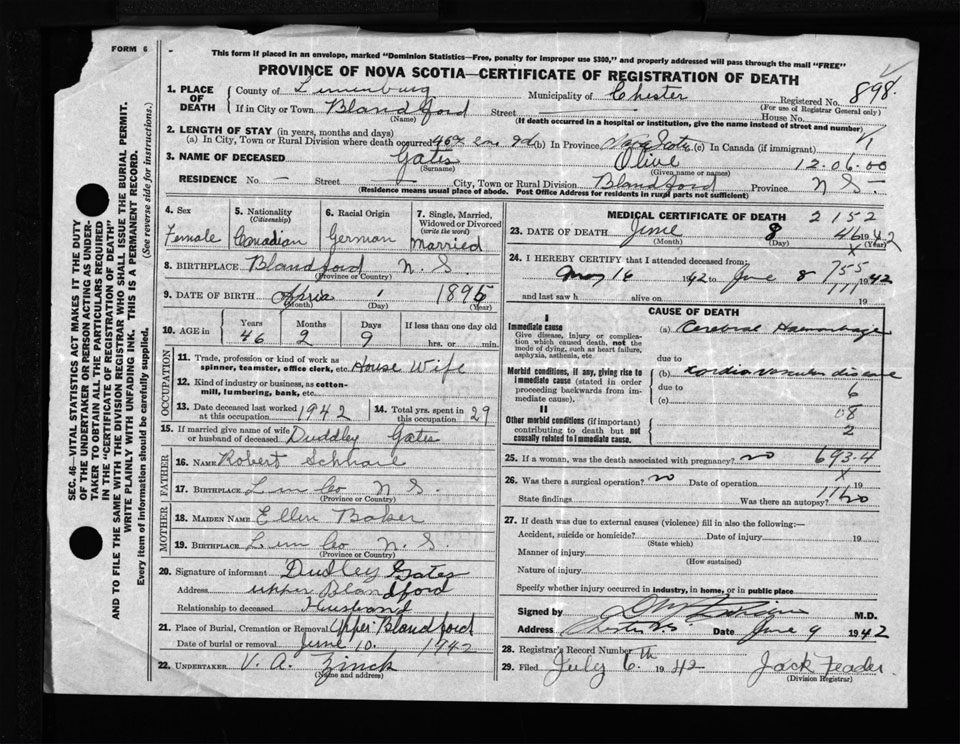 FORM 6
This form if placed in an envelope, marked "Dominion Statistics—Free, penalty for improper use $300," and properly addressed will pass through the mail "FREE"
PROVINCE OF NOVA SCOTIA—CERTIFICATE OF REGISTRATION OF DEATH
1. PLACE OF DEATH
County of Lunenburg Municipality of Chester Registered No. 898
(For use of Registrar General only)
If in City or Town Blandford Street House No.
(Name) (If death occurred in a hospital or institution, give the name instead of street and number)
2. LENGTH OF STAY (in years, months and days)
(a) In City, Town or Rural Division where death occurred 46y 2m 9d (b) In Province (c) In Canada (if immigrant)
3. NAME OF DECEASED Gates Olive 12.06.00
(Surname) (Given name or names)
RESIDENCE No. — Street — City, Town or Rural Division Blandford Province N S.
(Residence means usual place of abode. Post Office Address for residents in rural parts not sufficient)
4. Sex Female
5. Nationality (Citizenship) Canadian
6. Racial Origin German
7. Single, Married, Widowed or Divorced (write the word) Married
8. BIRTHPLACE Blandford N. S.
(Province or Country)
9. DATE OF BIRTH 1 1896
(Month) (Day) (Year)
10. AGE in Years Months Days If less than one day old
46 2 9 hrs. or min.
OCCUPATION
11. Trade, profession or kind of work as spinner, teamster, office clerk, etc. House Wife
12. Kind of industry or business, as cotton-mill, lumbering, bank, etc.
13. Date deceased last worked at this occupation 1942
14. Total yrs. spent in this occupation 29
15. If married give name of wife or husband of deceased Duddley Gates
FATHER
16. NAME Robert
17. BIRTHPLACE Lun Co N S.
(Province or Country)
MOTHER
18. MAIDEN NAME Ellen Baker
19. BIRTHPLACE Lun Co N. S.
(Province or Country)
20. Signature of informant Dudley Gates
Address upper Blandford
Relationship to deceased Husband
21. Place of Burial, Cremation or Removal Upper Blandford
Date of burial or removal June 10. 1942
22. UNDERTAKER V. A. Zinck
(Name and address)
MEDICAL CERTIFICATE OF DEATH 2152
23. DATE OF DEATH June 8 46 1942
(Month) (Day) (Year)
24. I HEREBY CERTIFY that I attended deceased from:
May 16 1942 to June 8 755 1942
and last saw h alive on 111 19
CAUSE OF DEATH
I
Immediate cause
Give disease, injury or complication which caused death, not the mode of dying, such as heart failure, asphyxia, asthenia, etc.
(a) Cerebral Haemorrhage
due to
Morbid conditions, if any, giving rise to immediate cause (stated in order proceeding backwards from immediate cause).
(b) Cardio vascular disease
due to 6
(c)
08
II
Other morbid conditions (if important) contributing to death but not causally related to immediate cause.
2
25. If a woman, was the death associated with pregnancy? no 693.4
26. Was there a surgical operation? no Date of operation X 19
State findings Was there an autopsy? no
27. If death was due to external causes (violence) fill in also the following:—
Accident, suicide or homicide? Date of injury 19
(State which)
Manner of injury
(How sustained)
Nature of injury
Specify whether injury occurred in industry, in home, or in public place
Signed by M.D.
Address Chester N.S. Date June 9 1942
28. Registrar's Record Number
29. Filed July 6th 1942 Jack Feader
(Division Registrar)
SEC. 46—VITAL STATISTICS ACT MAKES IT THE DUTY
OF THE UNDERTAKER OR PERSON ACTING AS UNDER-
TAKER TO OBTAIN ALL THE PARTICULARS REQUIRED
IN THE "CERTIFICATE OF REGISTRATION OF DEATH"
AND TO FILE THE SAME WITH THE DIVISION REGISTRAR WHO SHALL ISSUE THE BURIAL PERMIT.
WRITE PLAINLY WITH UNFADING INK. THIS IS A PERMANENT RECORD.
Every item of information should be carefully supplied. (See reverse side for instructions.)